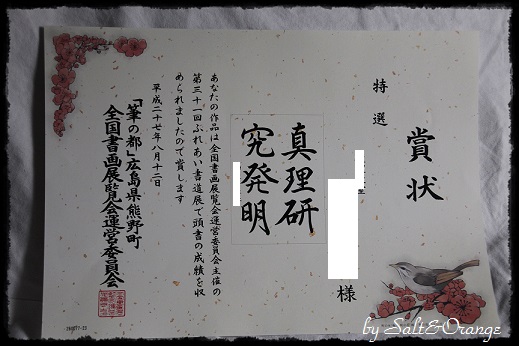 賞状
特選
様
真理研
究発明
あなたの作品は全国書画展覧会運営委員会主催の
第三十一回ふれあい書道展で頭書の成績を収
められましたので賞します
平成二十七年八月十二日
「筆の都」広島県熊野町
全国書画展覧会運営委員会
by Salt&Orange